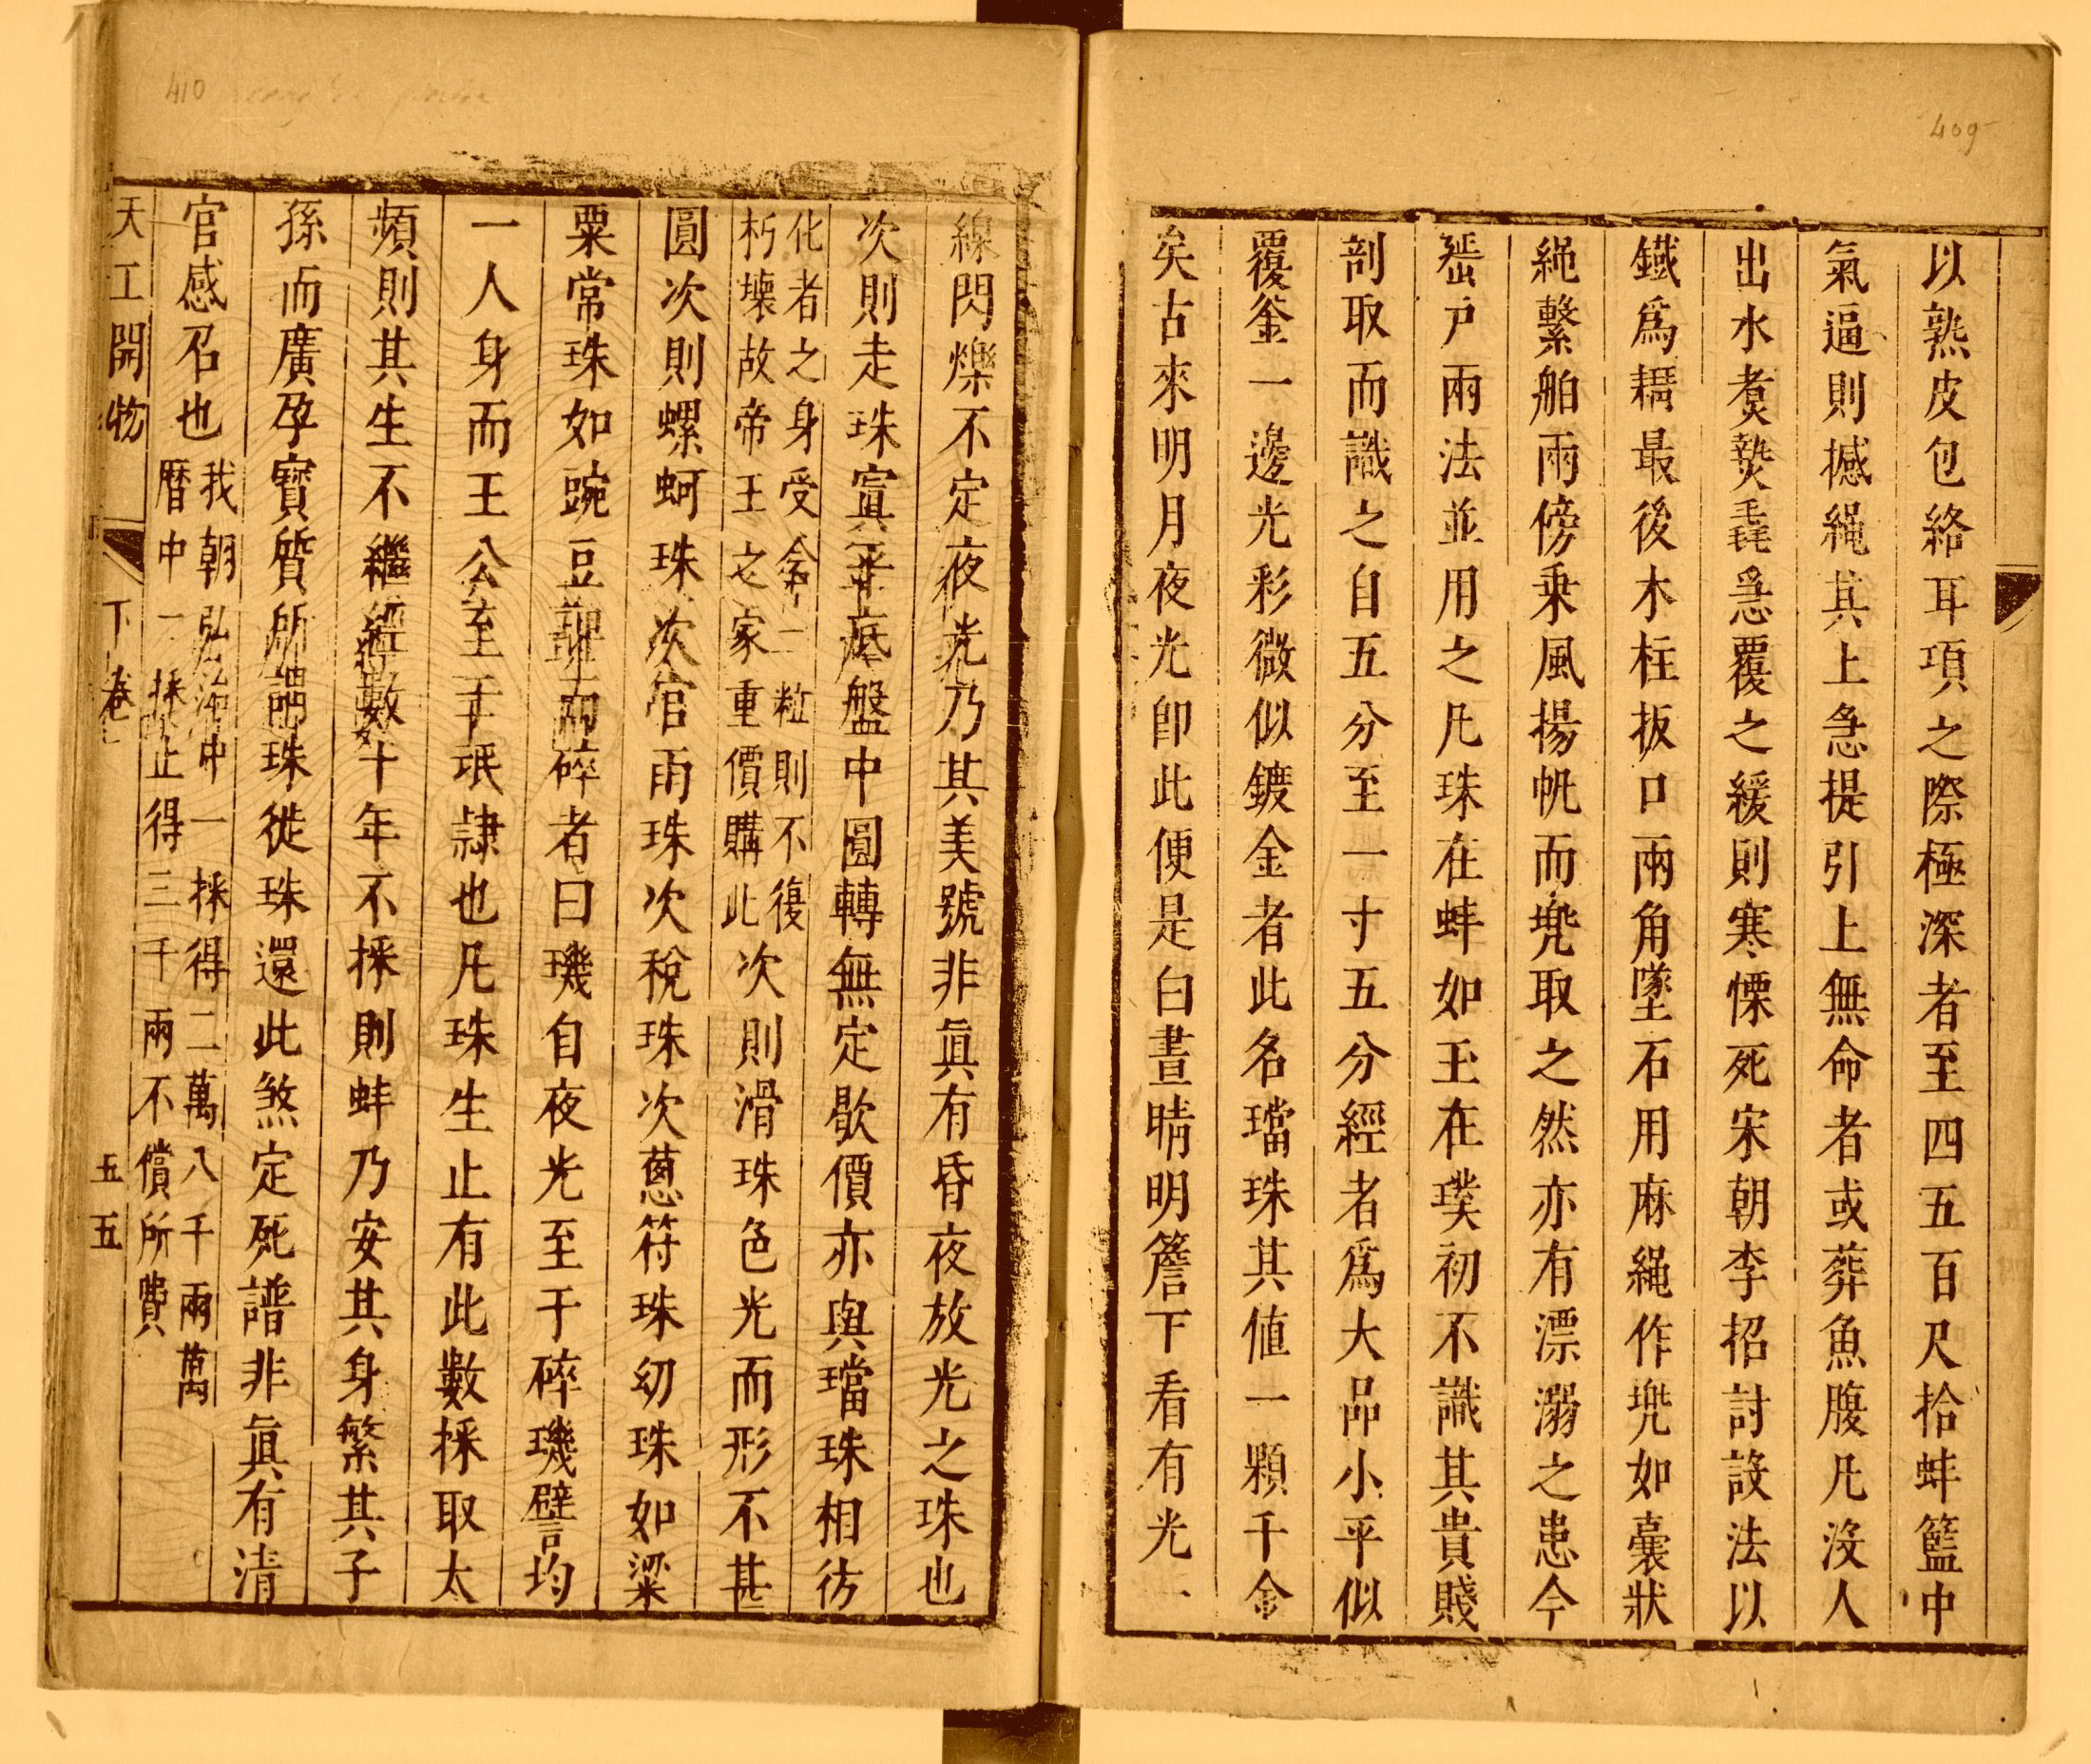 409
以熟皮包絡耳項之際極深者至四五百尺拾蚌籃中
氣逼則撼繩其上急提引上無命者或葬魚腹凡沒人
出水煑𤍠毳急覆之緩則寒慄死宋朝李招討設法以
鐵爲耩最後木柱扳口兩角墜石用麻繩作兠如囊狀
繩繫舶兩傍乗風揚帆而兠取之然亦有漂溺之患今
蜑戸兩法並用之凡珠在蚌如玉在璞初不識其貴賤
剖取而識之自五分至一寸五分經者爲大品小平似
覆釜一邊光彩微似鍍金者此名璫珠其值一顆千金
矣古來明月夜光卽此便是白晝晴明簷下看有光一
410
線閃爍不定夜光乃其美號非眞有昏夜放光之珠也
次則走珠寘平底盤中圓轉無定歇價亦與璫珠相彷
化者之身受含一粒則不復
朽壞故帝王之家重價購此
次則滑珠色光而形不甚
圓次則螺蚵珠次官雨珠次稅珠次蔥符珠幼珠如粱
粟常珠如豌豆琕而碎者曰璣自夜光至于碎璣譬均
一人身而王公至于氓隷也凡珠生止有此數採取太
頻則其生不繼經數十年不採則蚌乃安其身繁其子
孫而廣孕寳質所謂珠徙珠還此煞定死譜非眞有清
官感召也
我朝弘治中一採得二萬八千兩萬
曆中一採止得三千兩不償所費
天工開物 下卷 五五